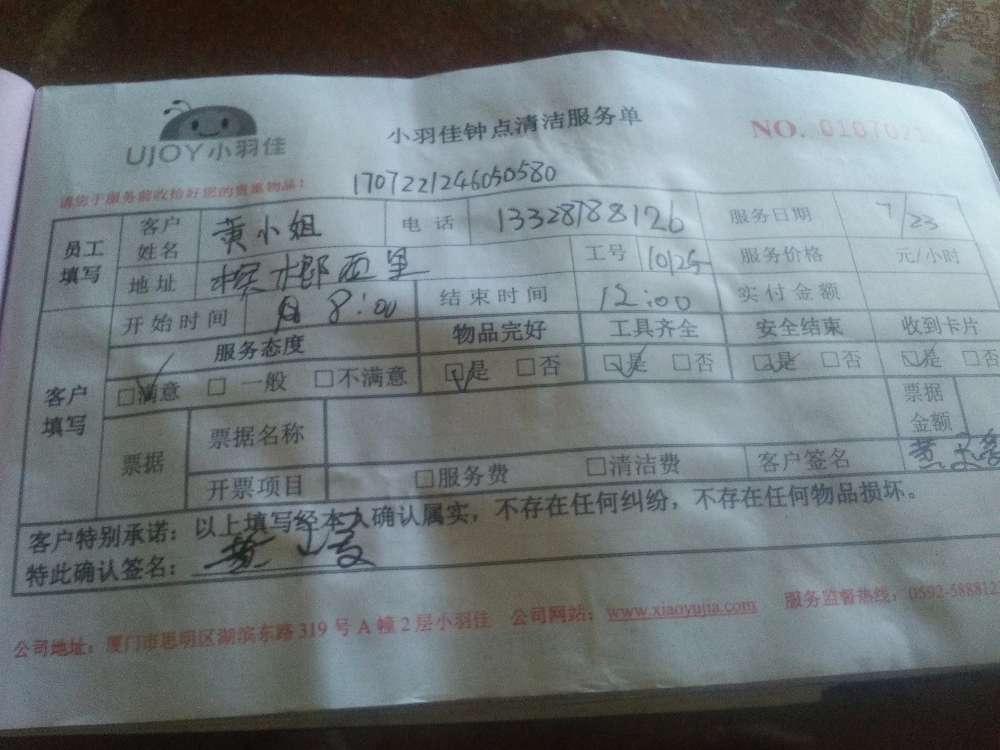 UJOY小羽佳
小羽佳钟点清洁服务单
NO. 010702
请您于服务前收拾好您的贵重物品!
1707221246050580
员工填写 客户姓名 黄小姐 电话 13328788126 服务日期 7/23
地址 槟榔西里 工号 10125 服务价格 元/小时
客户填写 开始时间 8:00 结束时间 12:00 实付金额
服务态度 物品完好 工具齐全 安全结束 收到卡片
□满意 □一般 □不满意 □是 □否 □是 □否 □是 □否 □是 □否
票据 票据名称 票据金额
开票项目 □服务费 □清洁费 客户签名 黄
客户特别承诺：以上填写经本人确认属实，不存在任何纠纷，不存在任何物品损坏。
特此确认签名： 黄
公司地址：厦门市思明区湖滨东路319号A幢2层小羽佳 公司网站：www.xiaoyujia.com 服务监督热线：0592-588812